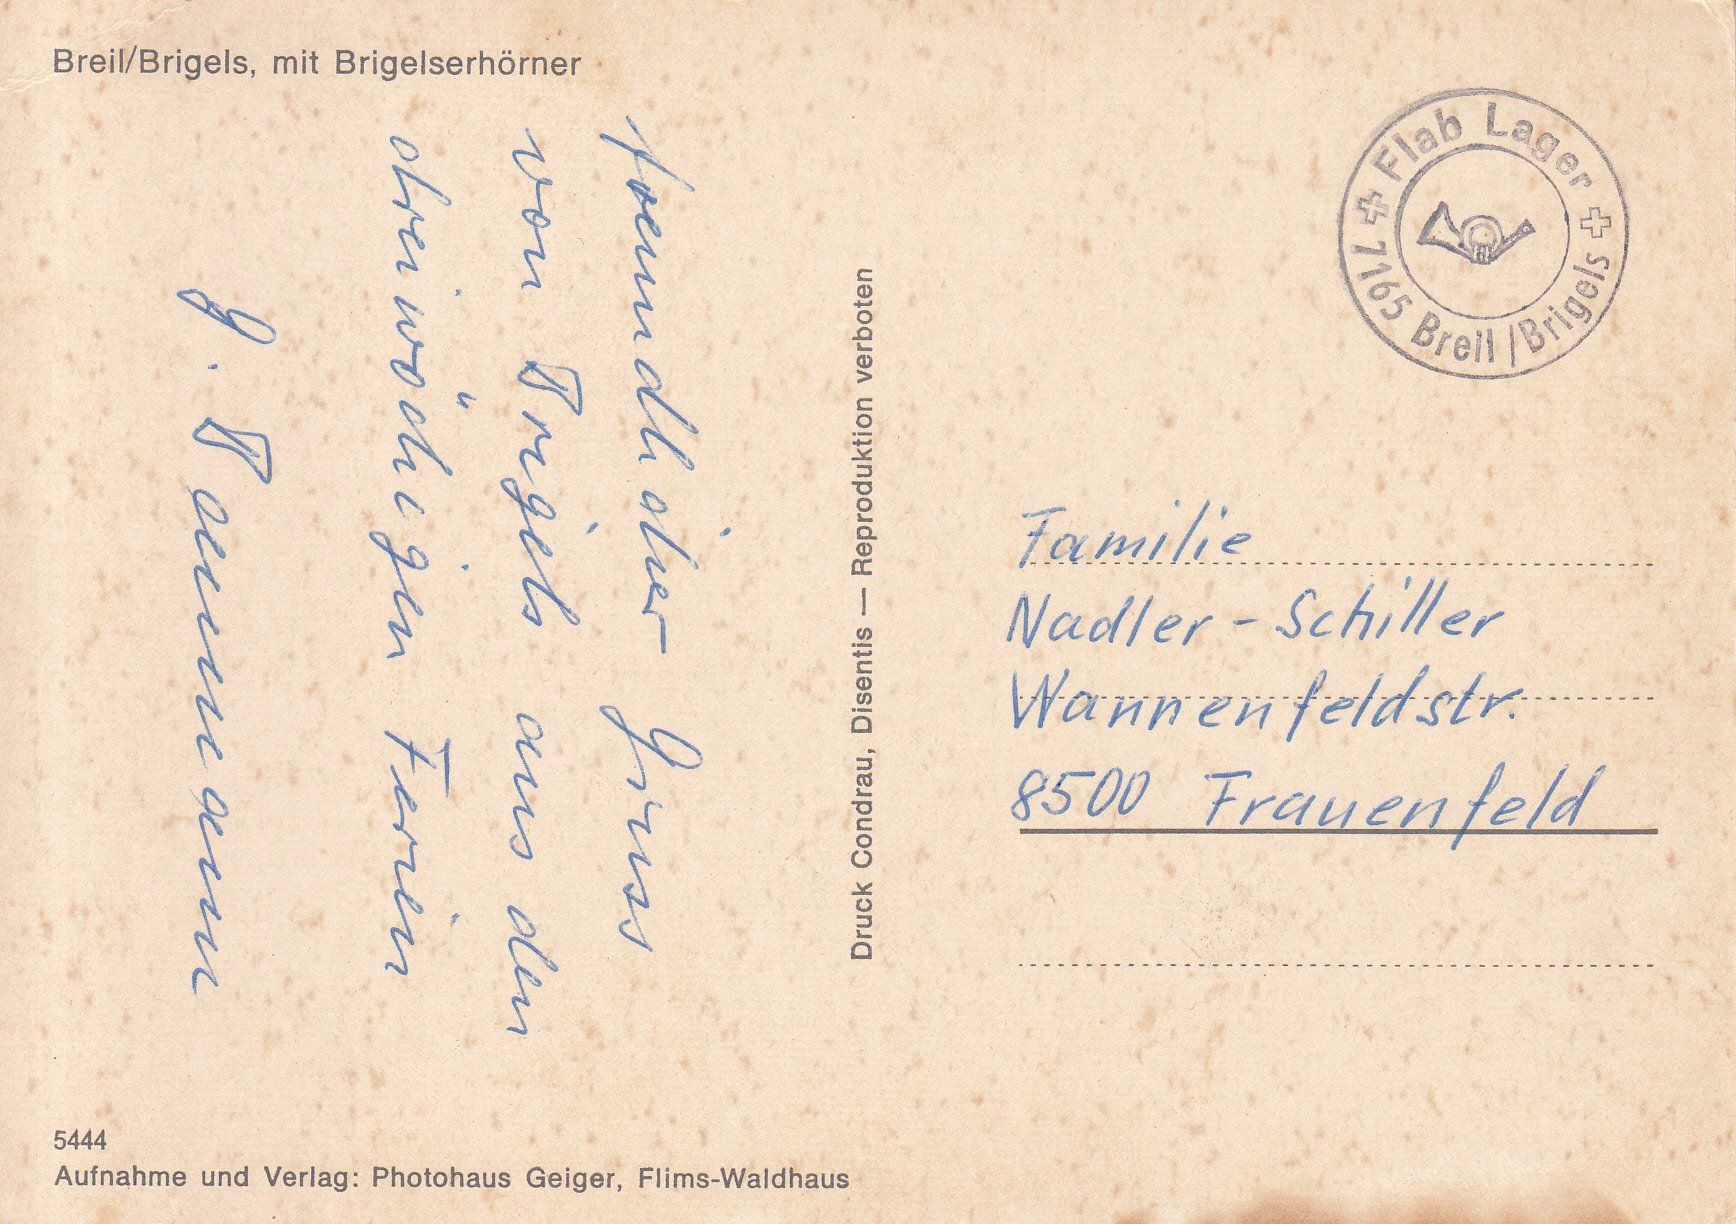 Breil/Brigels, mit Brigelserhörner
Freundlicher Gruss
von Brigels aus den
dreiwöchigen Ferien
G. Baumann
Druck Condrau, Disentis — Reproduktion verboten
Flab Lager
7165 Breil/Brigels
Familie
Nadler-Schiller
Wannenfeldstr.
8500 Frauenfeld
5444
Aufnahme und Verlag: Photohaus Geiger, Flims-Waldhaus